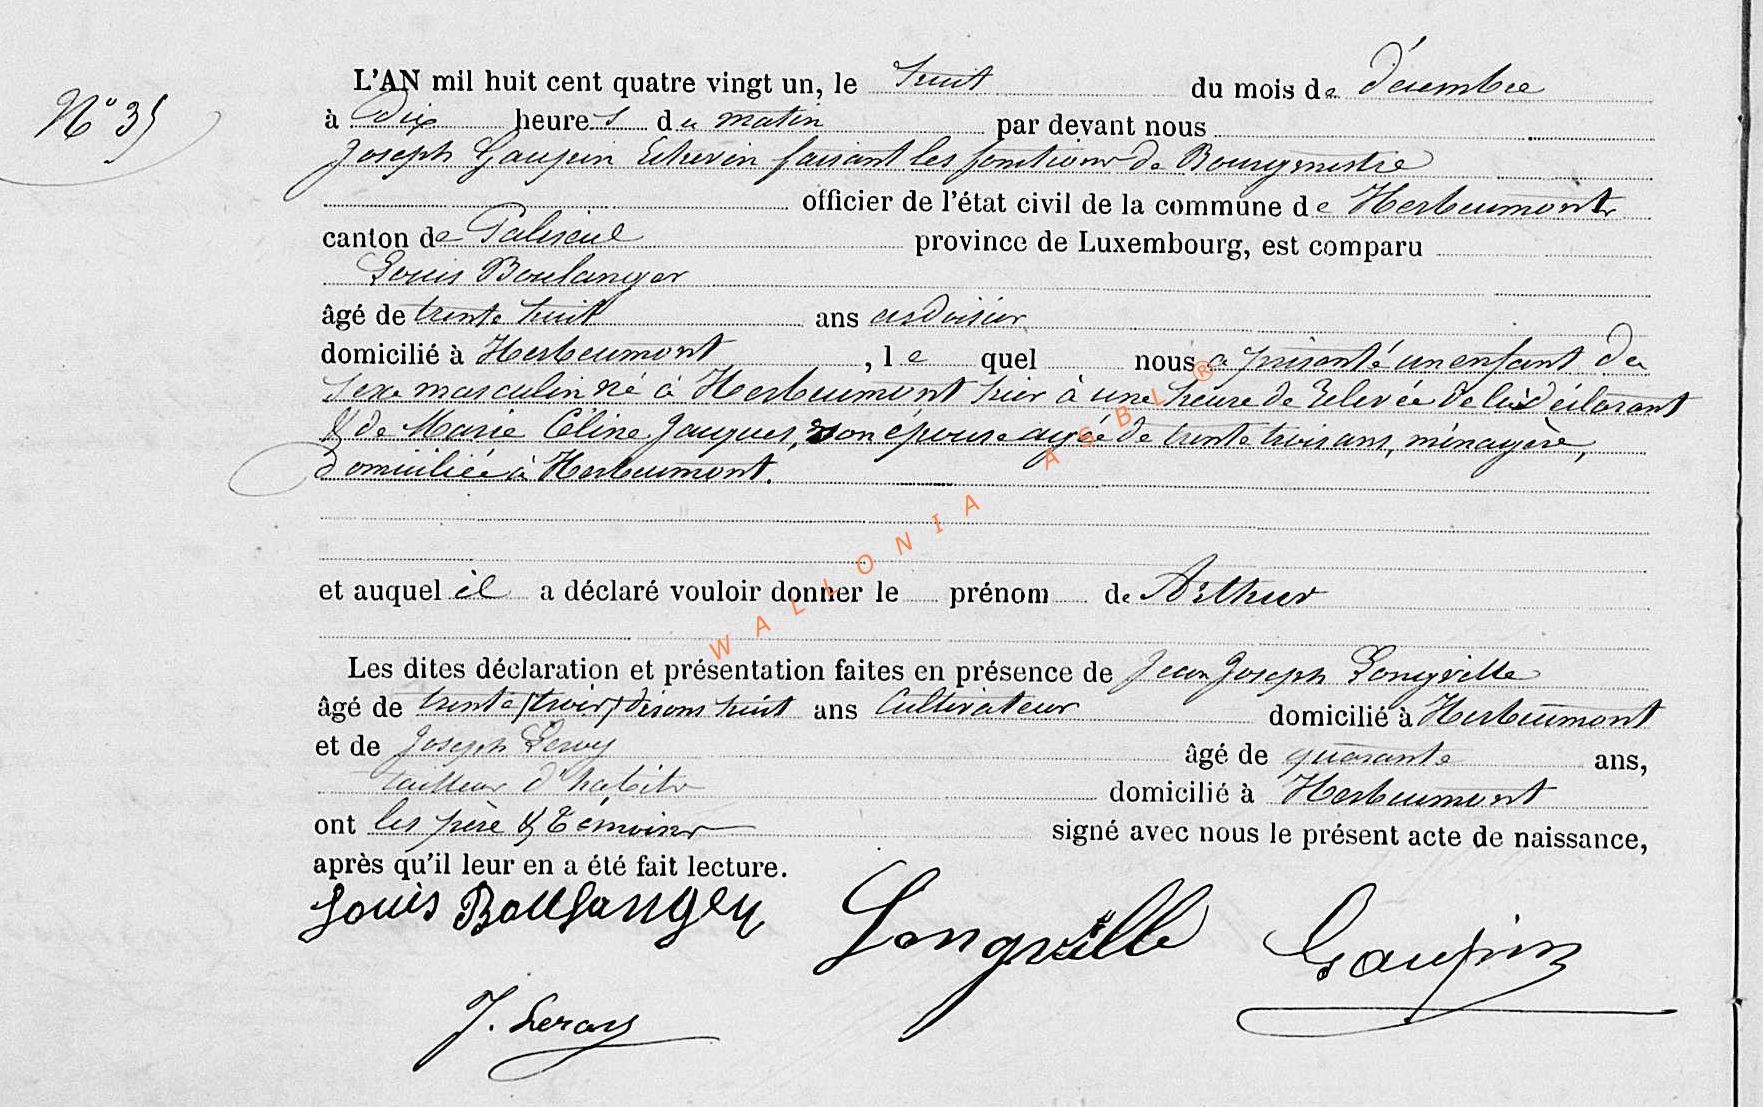 N° 35
L'AN mil huit cent quatre vingt un, le huit du mois de décembre
à dix heures du matin par devant nous
Joseph Gaupin Echevin faisant les fonctions de Bourgmestre
officier de l'état civil de la commune de Herbeumont
canton de Paliseul province de Luxembourg, est comparu
Louis Boulanger
âgé de trente huit ans ardoisier
domicilié à Herbeumont, lequel nous a présenté un enfant du
sexe masculin né à Herbeumont hier à une heure de relevée de lui déclarant
& de Marie Céline Jacques, son épouse agée de trente trois ans, ménagère,
domiciliée à Herbeumont.
et auquel il a déclaré vouloir donner le prénom de Arthur
Les dites déclaration et présentation faites en présence de Jean Joseph Longville
âgé de trente (trois) disons huit ans Cultivateur domicilié à Herbeumont
et de Joseph Leroy âgé de quarante ans,
tailleur d'habits domicilié à Herbeumont
ont les père & témoins signé avec nous le présent acte de naissance,
après qu'il leur en a été fait lecture.
Louis Boulanger Longville Gaupin
J. Leroy
WALLONIA ASBL ®